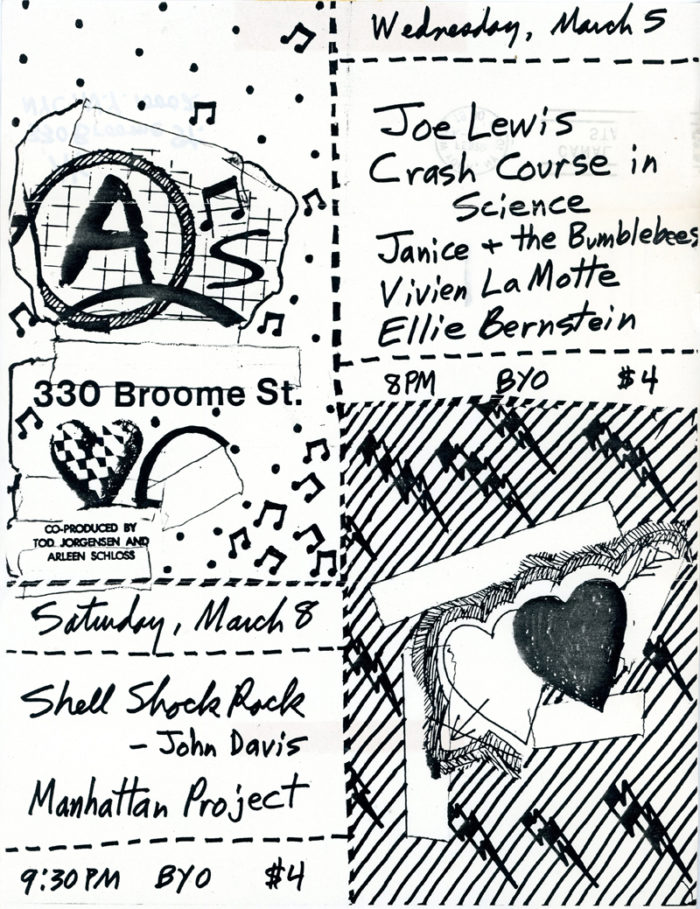 A's
330 Broome St.
CO-PRODUCED BY
TOD JORGENSEN AND
ARLEEN SCHLOSS
Wednesday, March 5
Joe Lewis
Crash Course in
Science
Janice + the Bumblebees
Vivien La Motte
Ellie Bernstein
8PM BYO $4
Saturday, March 8
Shell Shock Rock
- John Davis
Manhattan Project
9:30 PM BYO $4